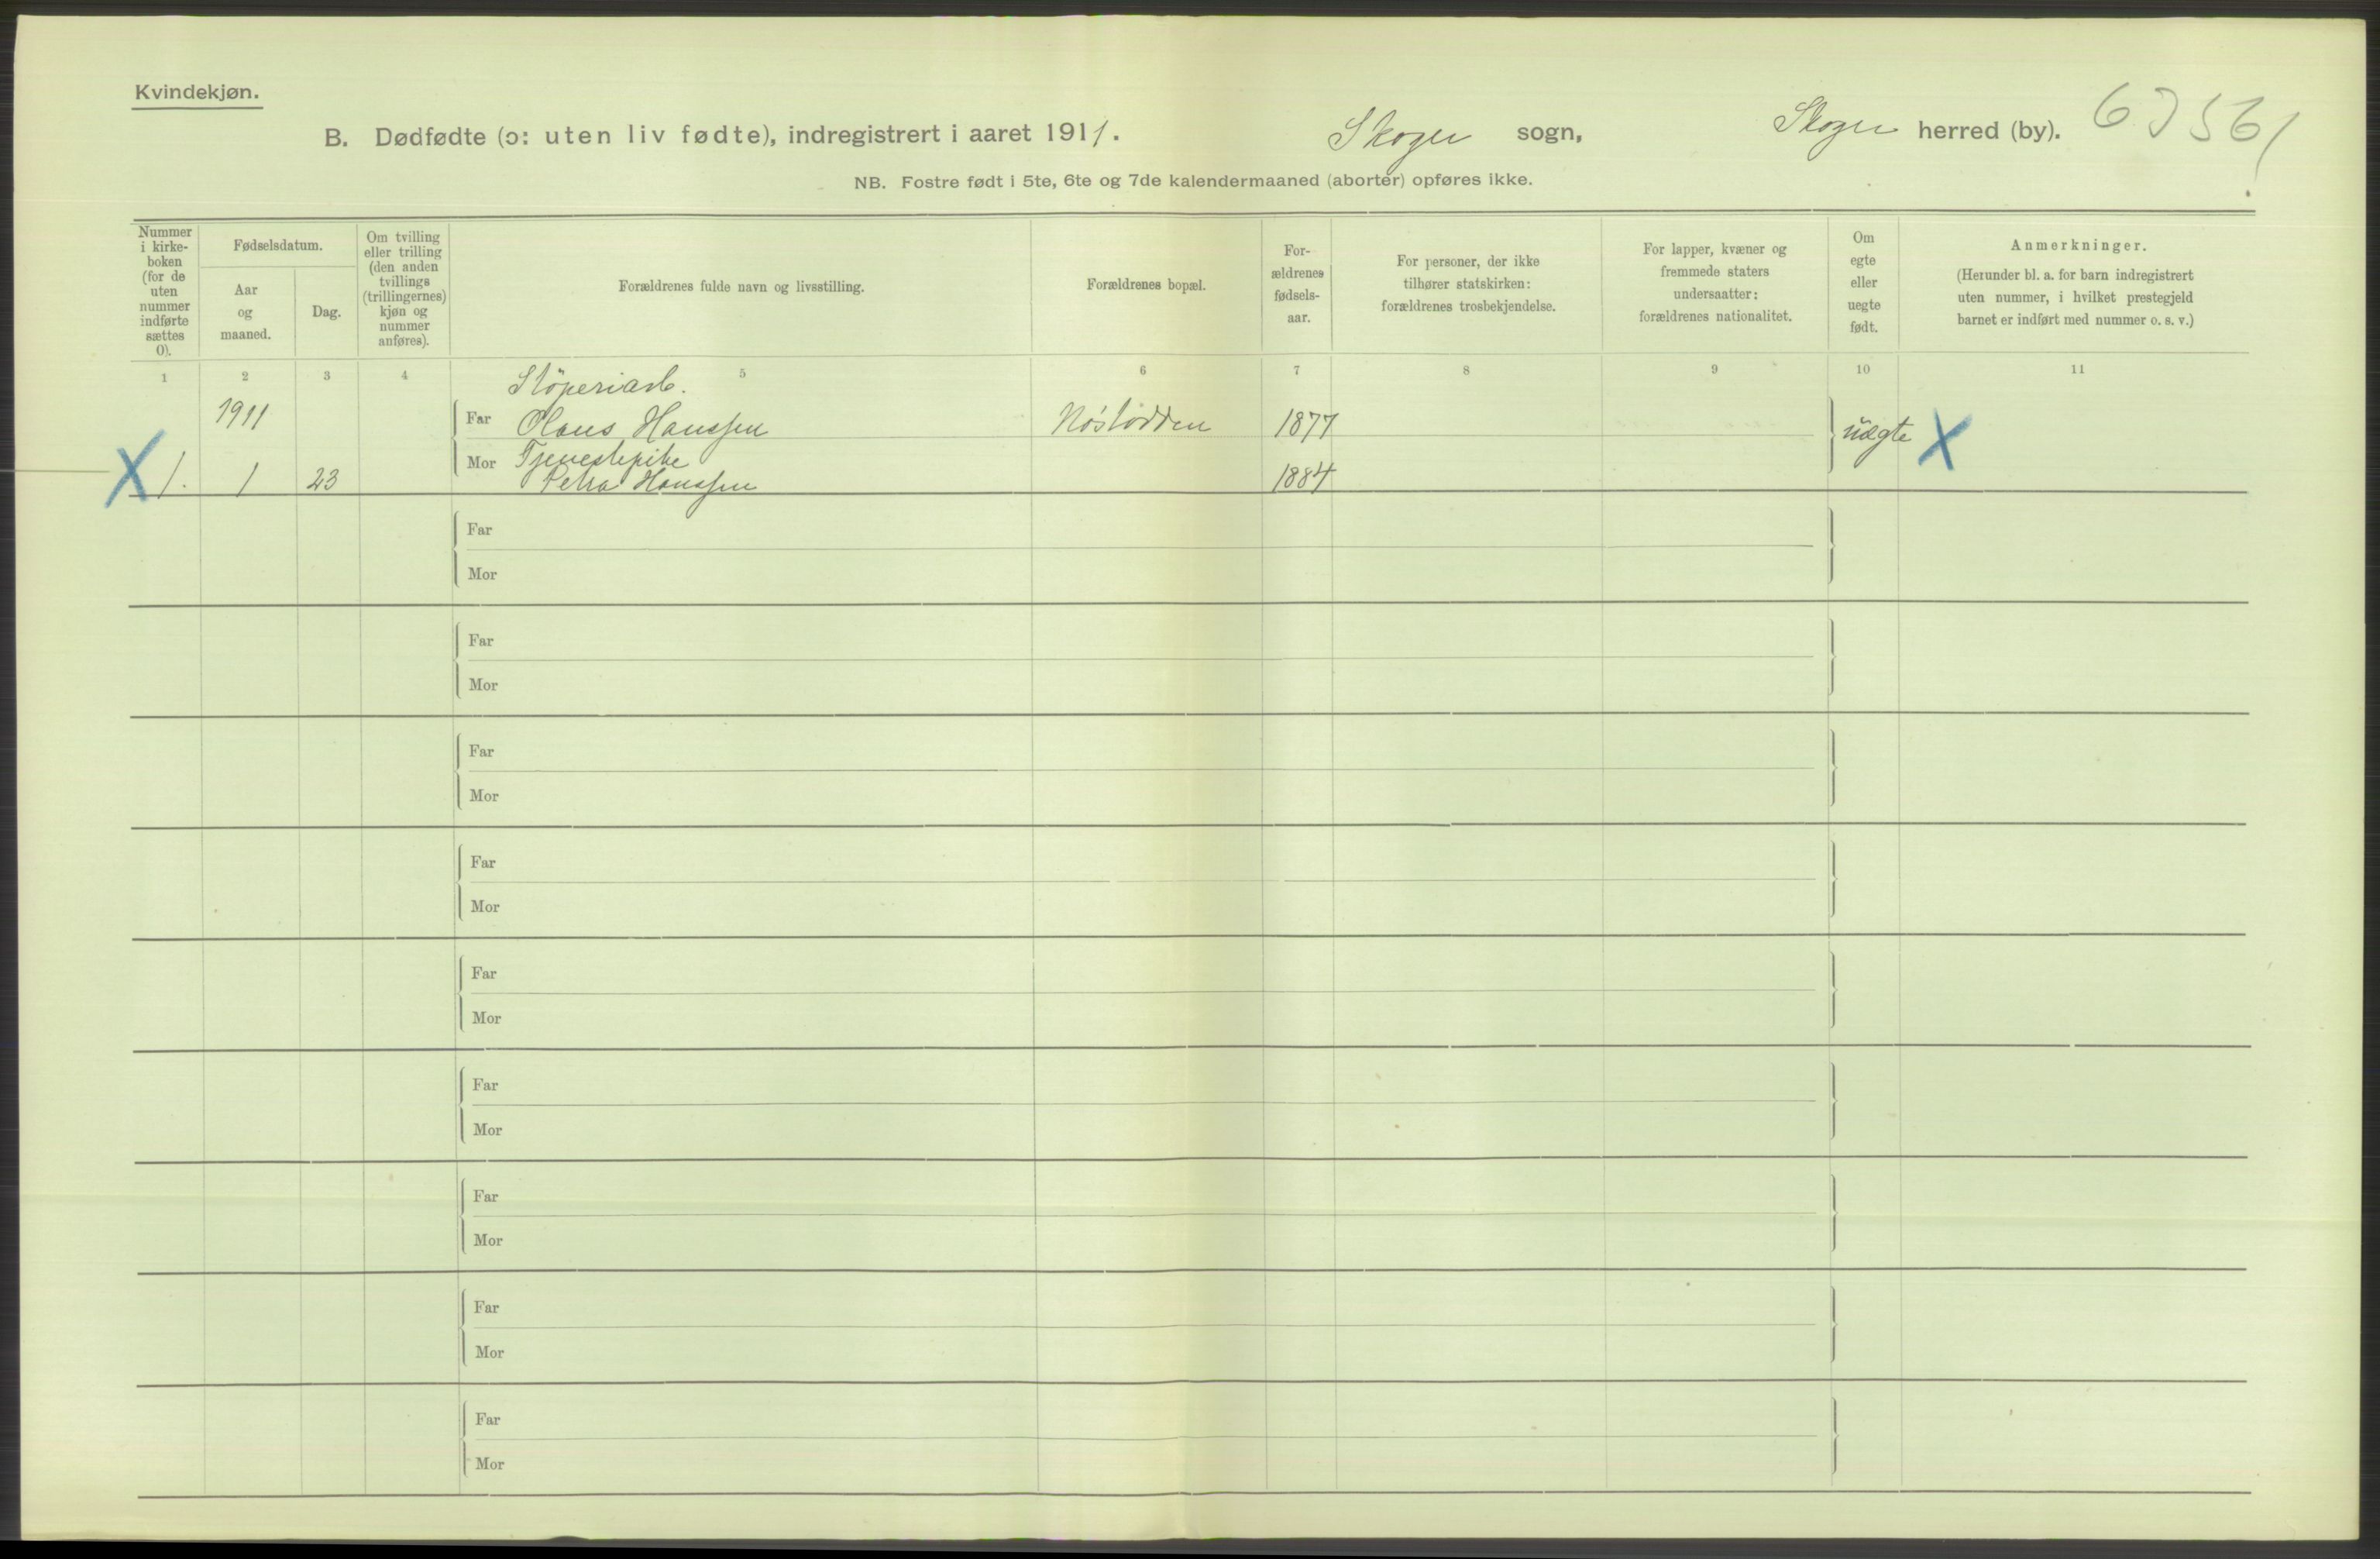 Kvindekjøn.
B. Dødfødte (ɔ: uten liv fødte), indregistrert i aaret 1911. Skoger sogn, Skoger herred (by).
NB. Fostre født i 5te, 6te og 7de kalendermaaned (aborter) opføres ikke.
Nummer
i kirke-
boken
(for de
uten
nummer
indførte
sættes
0).
Fødselsdatum.
Aar
og
maaned.
Dag.
Om tvilling
eller trilling
(den anden
tvillings
(trillingernes)
kjøn og
nummer
anføres).
Forældrenes fulde navn og livsstilling.
Forældrenes bopæl.
For-
ældrenes
fødsels-
aar.
For personer, der ikke
tilhører statskirken:
forældrenes trosbekjendelse.
For lapper, kvæner og
fremmede staters
undersaatter:
forældrenes nationalitet.
Om
egte
eller
uegte
født.
Anmerkninger.
(Herunder bl. a. for barn indregistrert
uten nummer, i hvilket prestegjeld
barnet er indført med nummer o. s. v.)
1 2 3 4 5 6 7 8 9 10 11
Støperiarb.
1911 Far Olaus Hanssen Nøstodden 1877 uægte X
Mor Tjenestepike
X 1. 1 23 Petra Hanssen 1884
Far
Mor
Far
Mor
Far
Mor
Far
Mor
Far
Mor
Far
Mor
Far
Mor
Far
Mor
Far
Mor